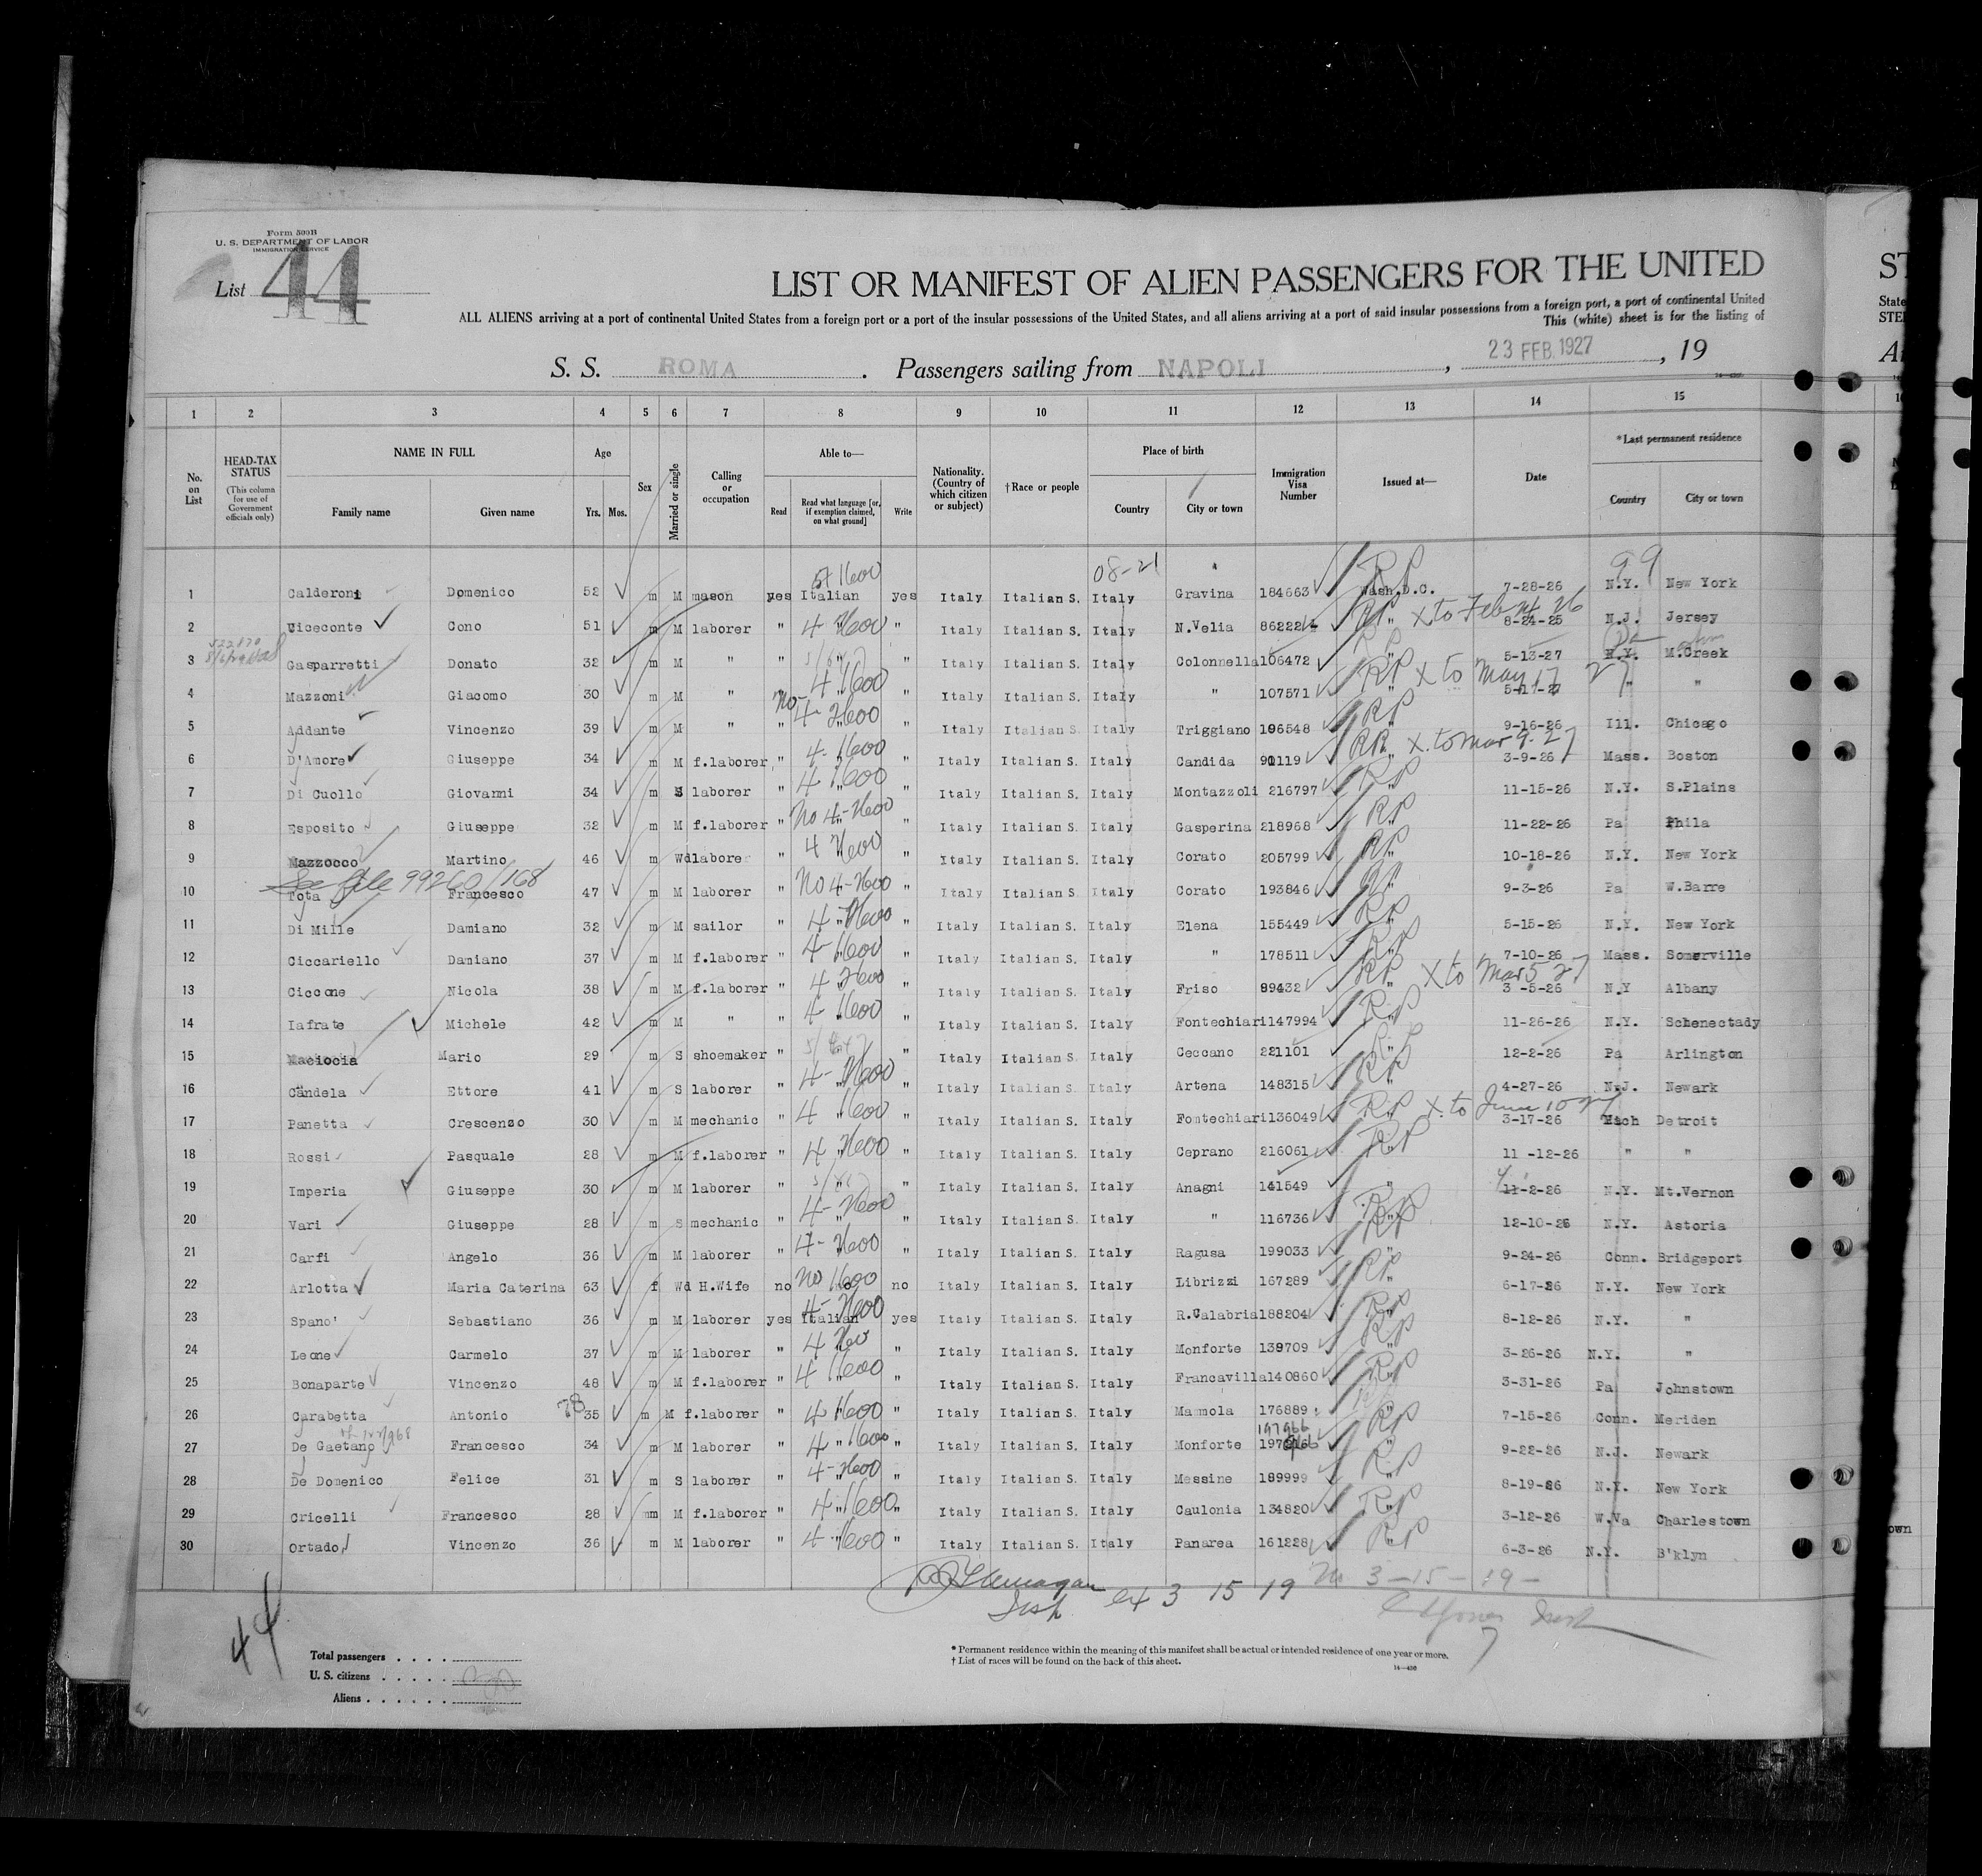 Form 500B
U. S. DEPARTMENT OF LABOR
IMMIGRATION SERVICE
List 44
LIST OR MANIFEST OF ALIEN PASSENGERS FOR THE UNITED
ALL ALIENS arriving at a port of continental United States from a foreign port or a port of the insular possessions of the United States, and all aliens arriving at a port of said insular possessions from a foreign port, a port of continental United
This (white) sheet is for the listing of
S. S. ROMA . Passengers sailing from NAPOLI , 23 FEB. 1927 , 19
1 2 3 4 5 6 7 8 9 10 11 12 13 14 15
No. on List
HEAD-TAX STATUS (This column for use of Government officials only)
NAME IN FULL
Family name Given name
Age
Yrs. Mos.
Sex
Married or single
Calling or occupation
Able to—
Read Read what language [or, if exemption claimed, on what ground] Write
Nationality. (Country of which citizen or subject)
†Race or people
Place of birth
Country City or town
Immigration Visa Number
Issued at—
Date
*Last permanent residence
Country City or town
08-21 99
1 Calderoni Domenico 52 m M mason yes Italian yes Italy Italian S. Italy Gravina 184663 Wash.D.C. 7-28-26 N.Y. New York
2 Viceconte Cono 51 m M laborer " " " Italy Italian S. Italy N.Velia 86222 RP " X to Feb 24 26 8-24-25 N.J. Jersey
3 Gasparretti Donato 32 m M " " " " Italy Italian S. Italy Colonnella 106472 " 5-13-27 M.Creek
4 Mazzoni Giacomo 30 m M " " " " Italy Italian S. Italy " 107571 RP X to May 17 27 5-17-27 " "
5 Addante Vincenzo 39 m M " " " " Italy Italian S. Italy Triggiano 196548 RP " 9-16-26 Ill. Chicago
6 D'Amore Giuseppe 34 m M f.laborer " " " Italy Italian S. Italy Candida 90119 RP " X to Mar 9. 27 3-9-26 Mass. Boston
7 Di Cuollo Giovanni 34 m S laborer " " " Italy Italian S. Italy Montazzoli 216797 RP " 11-15-26 N.Y. S.Plains
8 Esposito Giuseppe 32 m M f.laborer " " " Italy Italian S. Italy Gasperina 218968 RP " 11-22-26 Pa Phila
9 Mazzocco Martino 46 m Wd laborer " " " Italy Italian S. Italy Corato 205799 RP " 10-18-26 N.Y. New York
See file 99260/168
10 Tota Francesco 47 m M laborer " " " Italy Italian S. Italy Corato 193846 RP " 9-3-26 Pa W.Barre
11 Di Mille Damiano 32 m M sailor " " " Italy Italian S. Italy Elena 155449 RP " 5-15-26 N.Y. New York
12 Ciccariello Damiano 37 m M f.laborer " " " Italy Italian S. Italy " 178511 RP " 7-10-26 Mass. Somerville
13 Ciccone Nicola 38 m M f.laborer " " " Italy Italian S. Italy Friso 89432 RP " X to Mar 5 27 3-5-26 N.Y Albany
14 Iafrate Michele 42 m M " " " " Italy Italian S. Italy Fontechiari 147994 RP " 11-26-26 N.Y. Schenectady
15 Maciocia Mario 29 m S shoemaker " " " Italy Italian S. Italy Ceccano 221101 " 12-2-26 Pa Arlington
16 Candela Ettore 41 m S laborer " " " Italy Italian S. Italy Artena 148315 RP " 4-27-26 N.J. Newark
17 Panetta Crescenzo 30 m M mechanic " " " Italy Italian S. Italy Fontechiari 136049 RP " X to June 10 27 3-17-26 Mich Detroit
18 Rossi Pasquale 28 m M f.laborer " " " Italy Italian S. Italy Ceprano 216061 RP " 11-12-26 " "
19 Imperia Giuseppe 30 m M laborer " " " Italy Italian S. Italy Anagni 141549 " 11-2-26 N.Y. Mt.Vernon
20 Vari Giuseppe 28 m S mechanic " " " Italy Italian S. Italy " 116736 RP " 12-10-26 N.Y. Astoria
21 Carfi Angelo 36 m M laborer " " " Italy Italian S. Italy Ragusa 199033 RP " 9-24-26 Conn. Bridgeport
22 Arlotta Maria Caterina 63 f Wd H.Wife no no no Italy Italian S. Italy Librizzi 167289 RP " 6-17-26 N.Y. New York
23 Spano' Sebastiano 36 m M laborer yes Italian yes Italy Italian S. Italy R.Calabria 188204 RP " 8-12-26 N.Y. "
24 Leone Carmelo 37 m M laborer " " " Italy Italian S. Italy Monforte 139709 RP " 3-26-26 N.Y. "
25 Bonaparte Vincenzo 48 m M f.laborer " " " Italy Italian S. Italy Francavilla 140860 RP " 3-31-26 Pa Johnstown
26 Carabetta Antonio 35 m M f.laborer " " " Italy Italian S. Italy Mammola 176889 " 7-15-26 Conn. Meriden
27 De Gaetano Francesco 34 m M laborer " " " Italy Italian S. Italy Monforte 197966 RP " 9-22-26 N.J. Newark
28 De Domenico Felice 31 m S laborer " " " Italy Italian S. Italy Messine 189999 RP " 8-19-26 N.Y. New York
29 Cricelli Francesco 28 m M f.laborer " " " Italy Italian S. Italy Caulonia 134820 RP " 3-12-26 W.Va Charlestown
30 Ortado Vincenzo 36 m M laborer " " " Italy Italian S. Italy Panarea 161228 RP " 6-3-26 N.Y. B'klyn
Insp. ex 3 15 19 3-15-19-
44
Total passengers
U. S. citizens
Aliens
* Permanent residence within the meaning of this manifest shall be actual or intended residence of one year or more.
† List of races will be found on the back of this sheet.
14—426